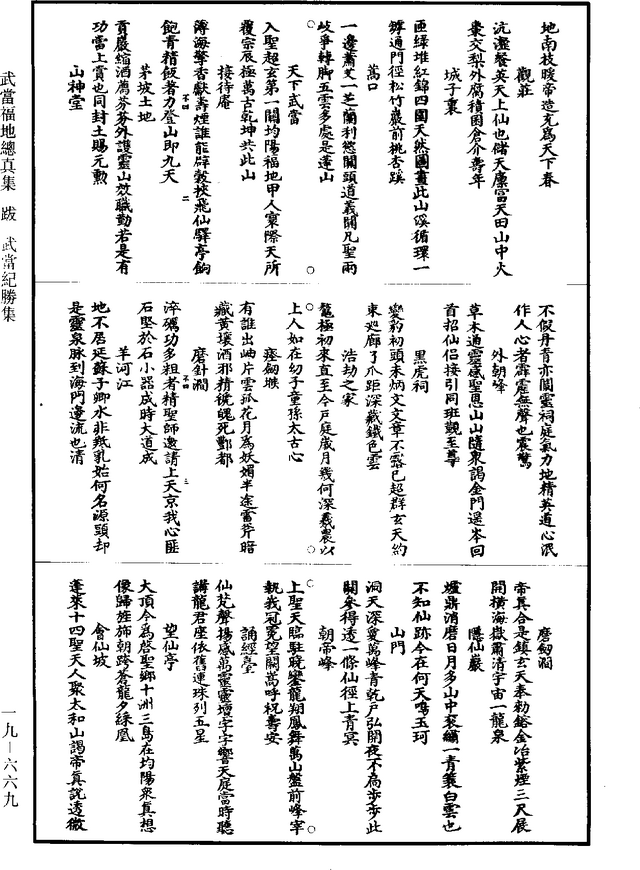 地南枝暖帝造克為天下春
觀莊
沆瀣餐英天上仙也儲天廩富天田山中火
棗交梨外腐積囷倉介壽年
城子裏
匝綠堆紅錦四圍天然圖畫此山溪循環一
罅通門徑松竹巖前桃杏蹊
萬口
一邊蕭艾一芝蘭利慾關頭道義關凡聖兩
岐爭轉脚五雲多處是蓬山
天下武當
入聖超玄第一關均陽福地甲人寰際天所
覆宗辰極萬古乾坤共此山
接待庵
薄海擎香獻壽煙誰能辟穀挾飛仙驛亭餉
飽青精飯著力登山即九天
茅坡土地
貢嚴縮酒薦芬芬外護靈山效職勤若是有
功當上賞也同封土賜元勳
山神堂
不假丹青亦閟靈祠庭氣力地精英道心泯
作人心者霹靂無聲也震驚
外朝峰
草木通靈感聖恩山山隨東謁金門遙岑回
首招仙侶接引同班觀至尊
黑虎祠
變豹初頭未炳文文章不露已超群玄天約
束巡廊了爪距深藏鐵色雲
浩劫之家
鰲極初來直至今戶庭歲月幾何深羲農以
上人如在幼子童孫太古心
瘞劒墩
有誰出岫片雲孤花月為妖媚半途雷斧暗
藏黃壤酒邪精魄死酆都
磨針澗
淬礪功多粗者精聖師邀請上天京我心匪
石堅於石小器成時大道成
羊河江
地不居延蘇子卿水非羝乳始何名源頭却
是靈泉脉到海門邊流也清
磨劒澗
帝真合是鎮玄天奉勑鎔金冶紫煙三尺展
開橫海嶽肅清宇宙一龍泉
隱仙巖
爐鼎消磨日月多山中裘繡一青蓑白雲也
不知仙跡今在何天鳴玉珂
山門
洞天深敻萬峰青乾戶弘開夜不扃步步此
關參得透一條仙徑上青冥
朝帝峰
上聖天臨駐曉鑾龍翔鳳舞萬山盤前峰宰
執峩冠冕望闕嵩呼祝壽安
誦經臺
仙梵聲揚感萬靈靈壇字字響天庭當時聽
講龍君座依舊連珠列五星
望仙亭
大頂今為啓聖鄉十洲三島在均陽眾真想
像歸旌斾朝跨蒼龍夕綵凰
會仙坡
蓬萊十四聖天人聚太和山謁帝真說透微
武當福地總真集 跋 武當紀勝集
一九－六六九